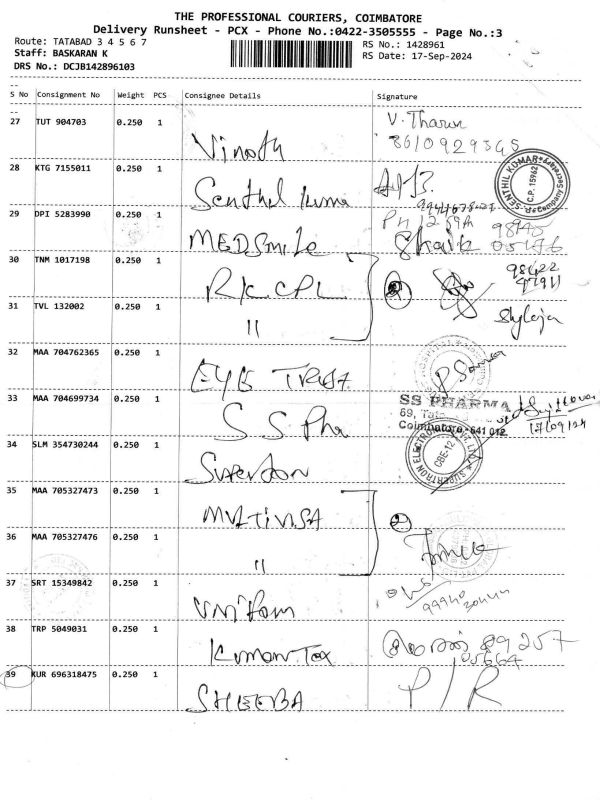 THE PROFESSIONAL COURIERS, COIMBATORE
Delivery Runsheet - PCX - Phone No.:0422-3505555 - Page No.:3
Route: TATABAD 3 4 5 6 7
RS No.: 1428961
Staff: BASKARAN K
RS Date: 17-Sep-2024
DRS No.: DCJB142896103
S No Consignment No Weight PCS Consignee Details Signature
27 TUT 904703 0.250 1 Vinoth V. Tharun
28 KTG 7155011 0.250 1 Senthil Kuma
P. SENTHIL KUMAR C.P. 15962
29 DPI 5283990 0.250 1 MEDSmile Shaik
30 TNM 1017198 0.250 1 RKCPL 2 98422
97911
31 TVL 132002 0.250 1 " Shyloja
32 MAA 704762365 0.250 1 EYE TRUST
33 MAA 704699734 0.250 1 S S Pha
SS PHARMA
Coimbatore-641 012
17/09/24
34 SLM 354730244 0.250 1 Supertron
SUPERTRON ELECTRONICS PVT. LTD. CBE-12
35 MAA 705327473 0.250 1 MULTIVISA 2
36 MAA 705327476 0.250 1 "
37 SRT 15349842 0.250 1 Uniform
38 TRP 5049031 0.250 1 Kumaran Tex 89257
05664
39 KUR 696318475 0.250 1 SHEEBA P/R